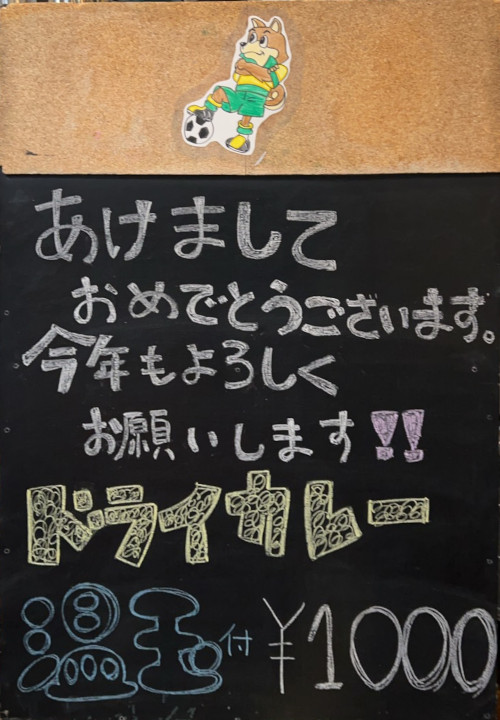 あけまして
おめでとうございます。
今年もよろしく
お願いします!!
ドライカレー
温玉付 ¥1000